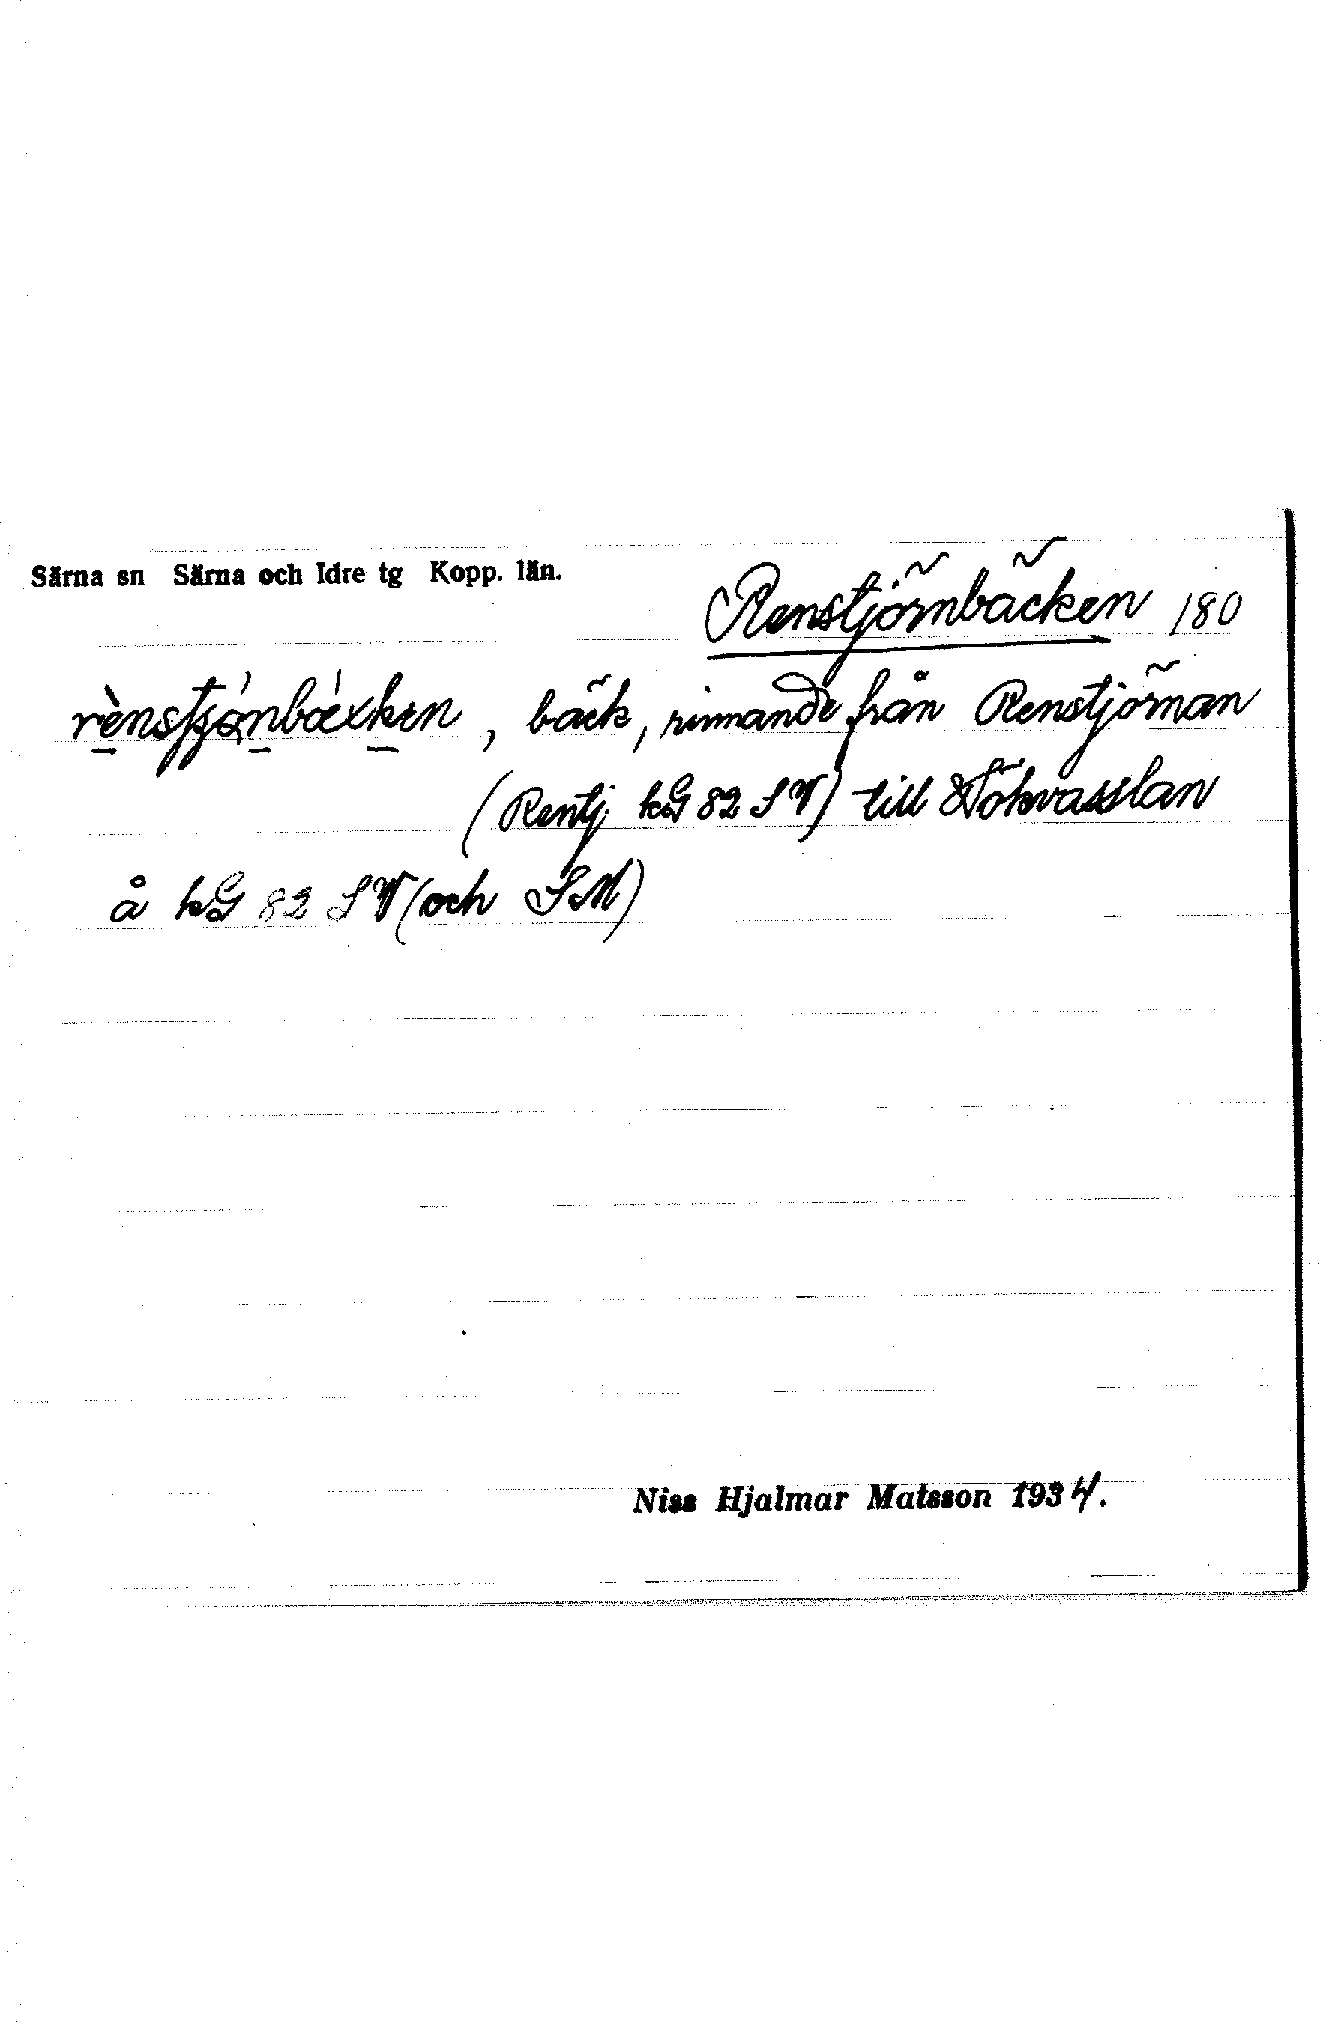 Särna sn Särna och Idre tg Kopp. län.
Renstjörnbäcken 180
, bäck, rinnande från Renstjörnan
(Rentj kG 82 SV) till
å kG 82 SV (och SM)
Niss Hjalmar Matsson 1934.